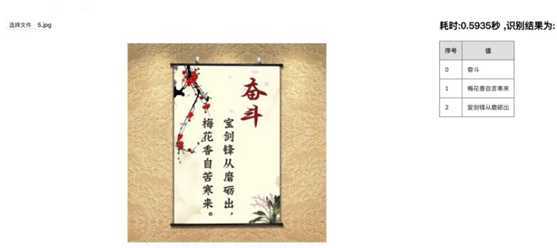 选择文件 5.jpg
耗时:0.5935秒 ,识别结果为:
序号 值
0 奋斗
1 梅花香自苦寒来
2 宝剑锋从磨砺出
奋斗
宝剑锋从磨砺出，
梅花香自苦寒来。